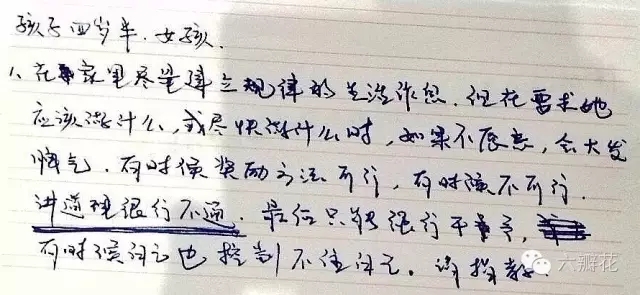 孩子四岁半.女孩.
1、在家里尽量建立规律的生活作息.但在要求她
应该做什么,或尽快做什么时,如果不愿意,会大发
脾气.有时候奖励方法可行,有时候不可行.
讲道理很行不通.最后只能强行干予,
有时候自己也控制不住自己.请指教
六瓣花